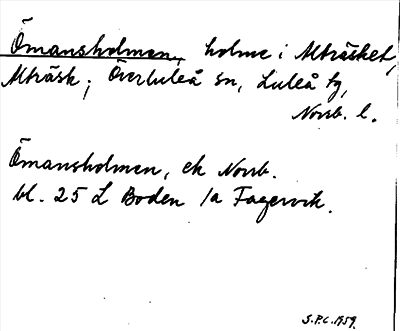 Ömansholmen, holme i Alträsket,
Alträsk, Överluleå sn, Luleå tg,
Norrb. l.
Ömansholmen, ek Norrb.
bl. 25 L Boden 1a Fagervik.
S.P.C. 1959.